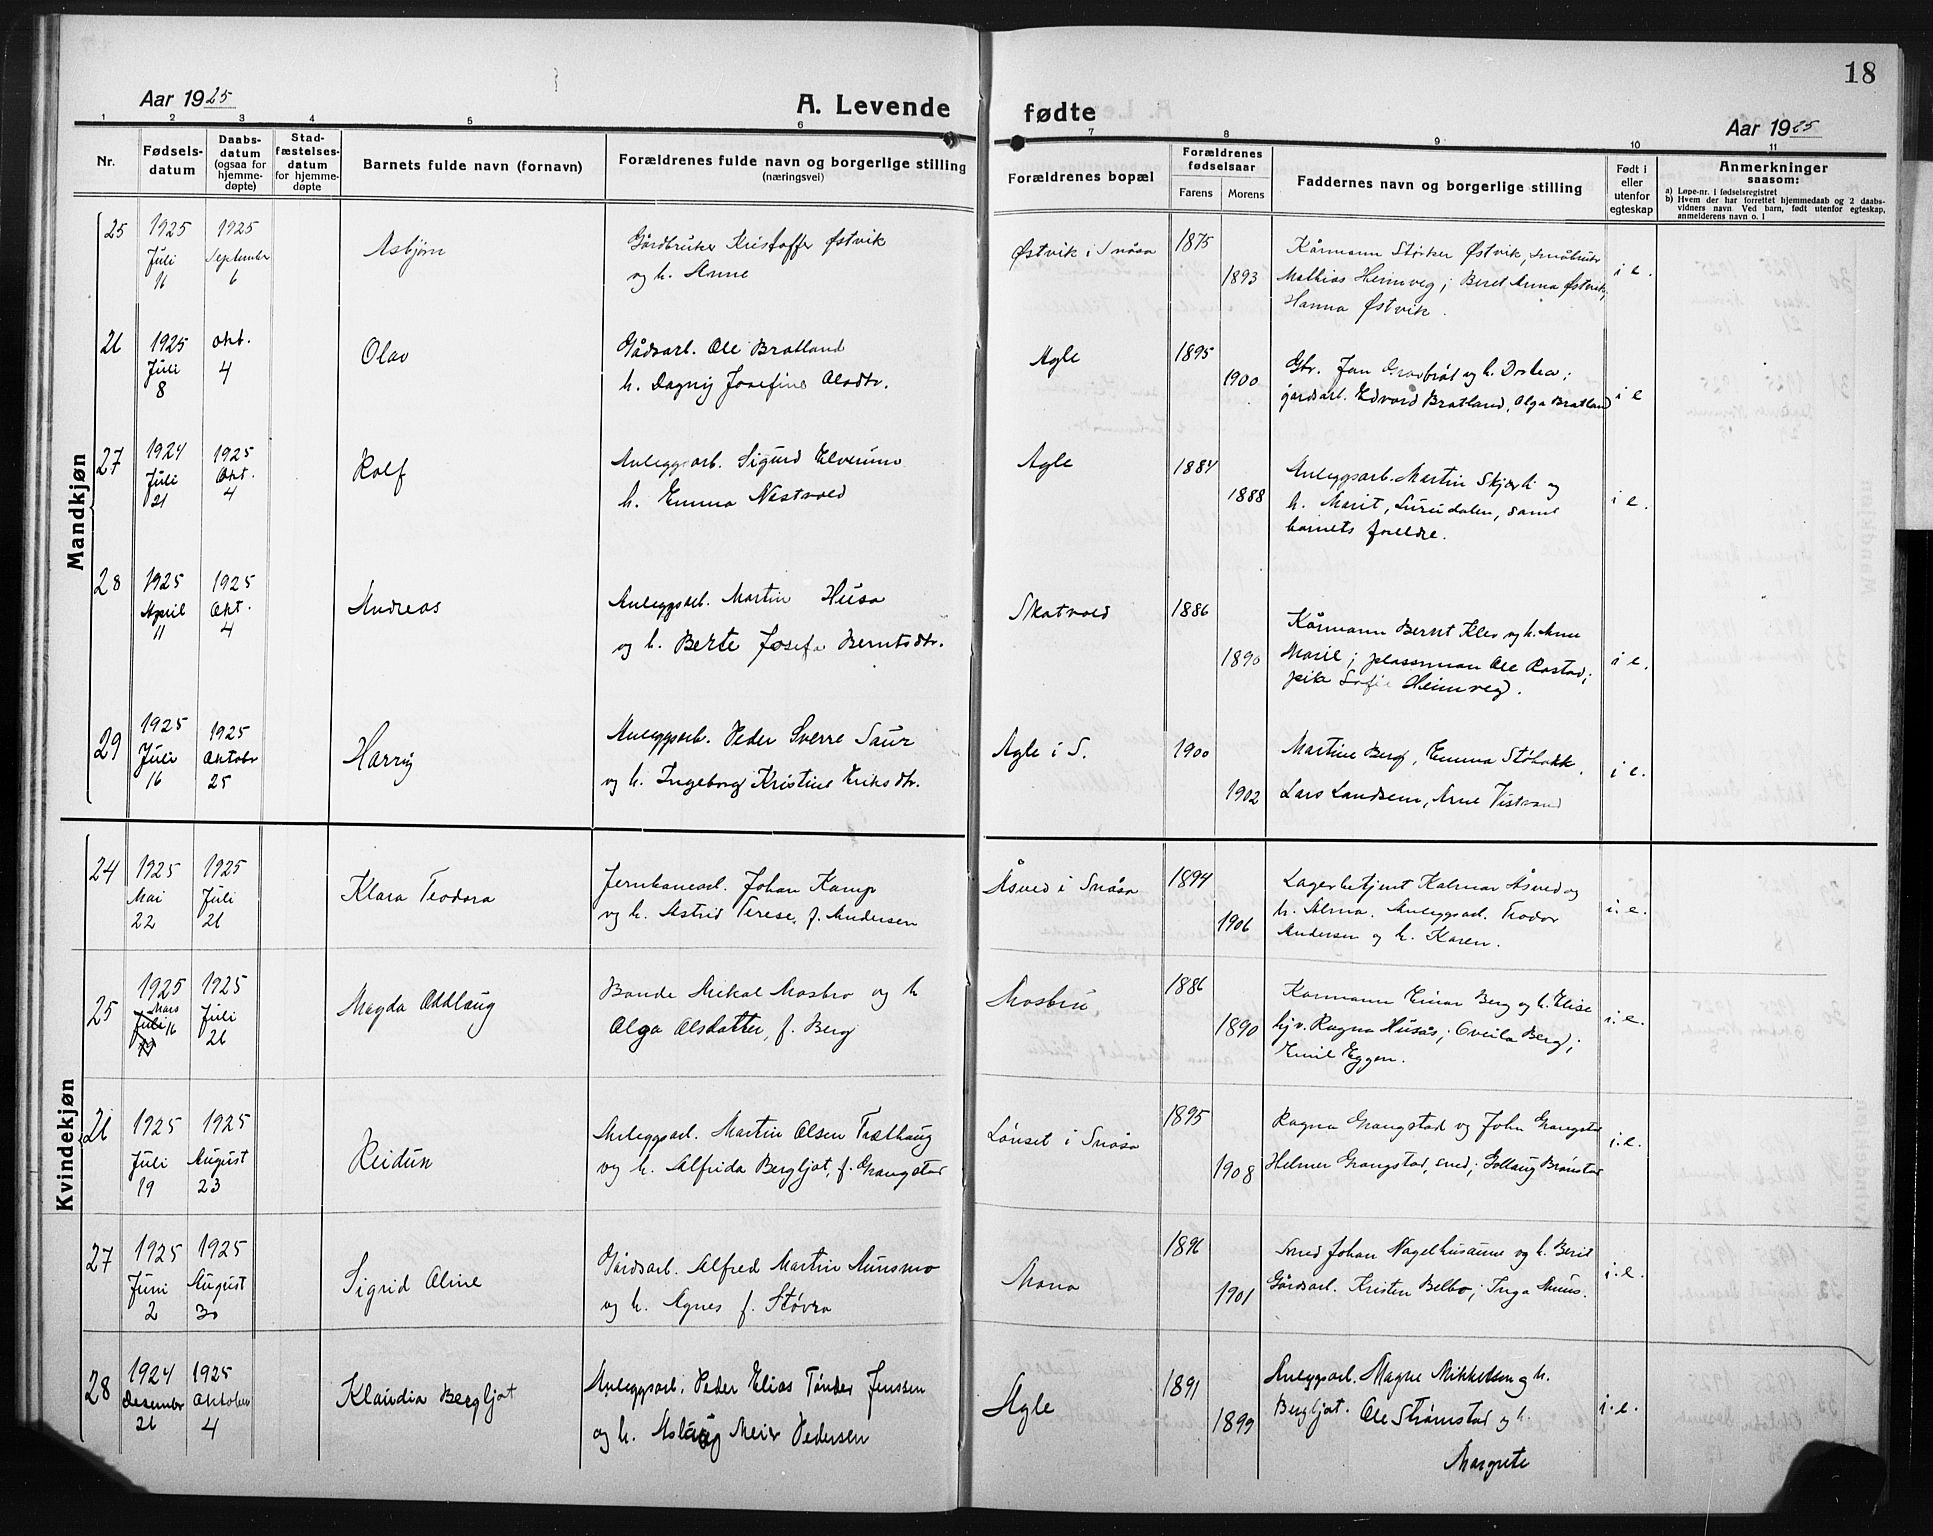 18
Aar 1925
A. Levende fødte
Aar 1925
1 2 3 4 5 6 7 8 9 10 11
Nr.
Fødsels-
datum
Daabs-
datum
(ogsaa for
hjemme-
døpte)
Stad-
fæstelses-
datum
for hjemme-
døpte
Barnets fulde navn (fornavn)
Forældrenes fulde navn og borgerlige stilling
(næringsvei)
Forældrenes bopæl
Forældrenes
fødselsaar
Farens Morens
Faddernes navn og borgerlige stilling
Født i
eller
utenfor
egteskap
Anmerkninger
saasom:
a) Løpe-nr. i fødselsregistret
b) Hvem der har forrettet hjemmedaab og 2 daabs-
vidners navn. Ved barn, født utenfor egteskap,
anmelderens navn o. l.
Mandkjøn
25
1925
Juli
11
1925
September
6
Asbjørn
Gårdbruker Kristoffer Østvik
og h. Anne
Østvik i Snåsa
1875
1893
Kårmann Størker Østvik, småbruker
Mathias Heimveg; Beret Anna Østvik;
Hanna Østvik.
i e.
26
1925
Juli
8
okt.
4
Olav
Gådsarb. Ole Bratland
h. Dagny Josefine Olsdtr.
Agle
1895
1900
Gbr. Jan Grønbrøt og h. Dortea;
gårdsarb. Edvard Bratland, Olga Bratland
i e
27
1924
Juli
21
1925
Okt.
4
Rolf
Anleggsarb. Sigurd Elverum
h. Emma Nestvold
Agle
1884
1888
Anleggsarb. Martin Skjærli og
h. Marit, Lurudalen, samt
barnets foreldre.
i e.
28
1925
April
11
1925
Okt.
4
Andreas
Anleggsarb. Martin Husa
og h. Berte Josefa Berntsdtr.
Skatvold
1886
1890
Kårmann Bernt Klev og h. Anne
Marie; plassman Ole Rastad;
pike Sofie Heimveg.
i e.
29
1925
Juli
16
1925
Oktobr
25
Harry
Anleggsarb. Peder Sverre Saur
og h. Ingeborg Kristine Eriksdtr.
Agle i S.
1900
1902
Martine Berg, Emma Støbakk,
Lars Landsem, Arne Vistvand
i e.
Kvindekjøn
24
1925
Mai
22
1925
Juli
26
Klara Teodora
Jernbanearb. Johan Kamp
og h. Astrid Terese, f. Andersen
Åsved i Snåsa
1894
1906
Lagerbetjent Kalmar Åsved og
h. Alma. Anleggsarb. Teodor
Andersen og h. Karen.
i. e.
25
1925
Mars
Juli 16
19
1925
Juli
26
Magda Oddlaug
Bonde Mikal Mosbro og h
Olga Olsdatter, f. Berg
Mosbru,
1886
1890
Karmann Einar Berg og h. Elise
hjv. Ragna Husås; Oveila Berg;
Emil Eggen.
i. e.
26
1925
Juli
19
1925
August
23
Reidun
Anleggsarb. Martin Olsen Træthaug
og h. Alfrida Bergljot, f. Grangstad
Lønset i Snåsa
1895
1908
Ragna Grangstad og John Grangstad
Helmer Grangstad, smed; Gollaug Brønstad
i. e.
27
1925
Juni
2
1925
August
30
Sigrid Oline
Gårdsarb. Alfred Martin Aunsmo
og h. Agnes f. Støvra
Mona
1896
1901
Smed Johan Nagelhusaune og h. Berit
Gårdsarb. Kristen Belbo; Inga Aunns.
i. e.
28
1924
Desember
26
1925
Oktober
4
Klaudia Bergljot
Anleggsarb. Peder Elias Tønder Jenssen
og h. Aslaug Meier Pedersen
Agle
1891
1899
Anleggsarb. Magne Mikkelsen og h.
Bergljot. Ole Strømstad og h.
Margrete
i. e.